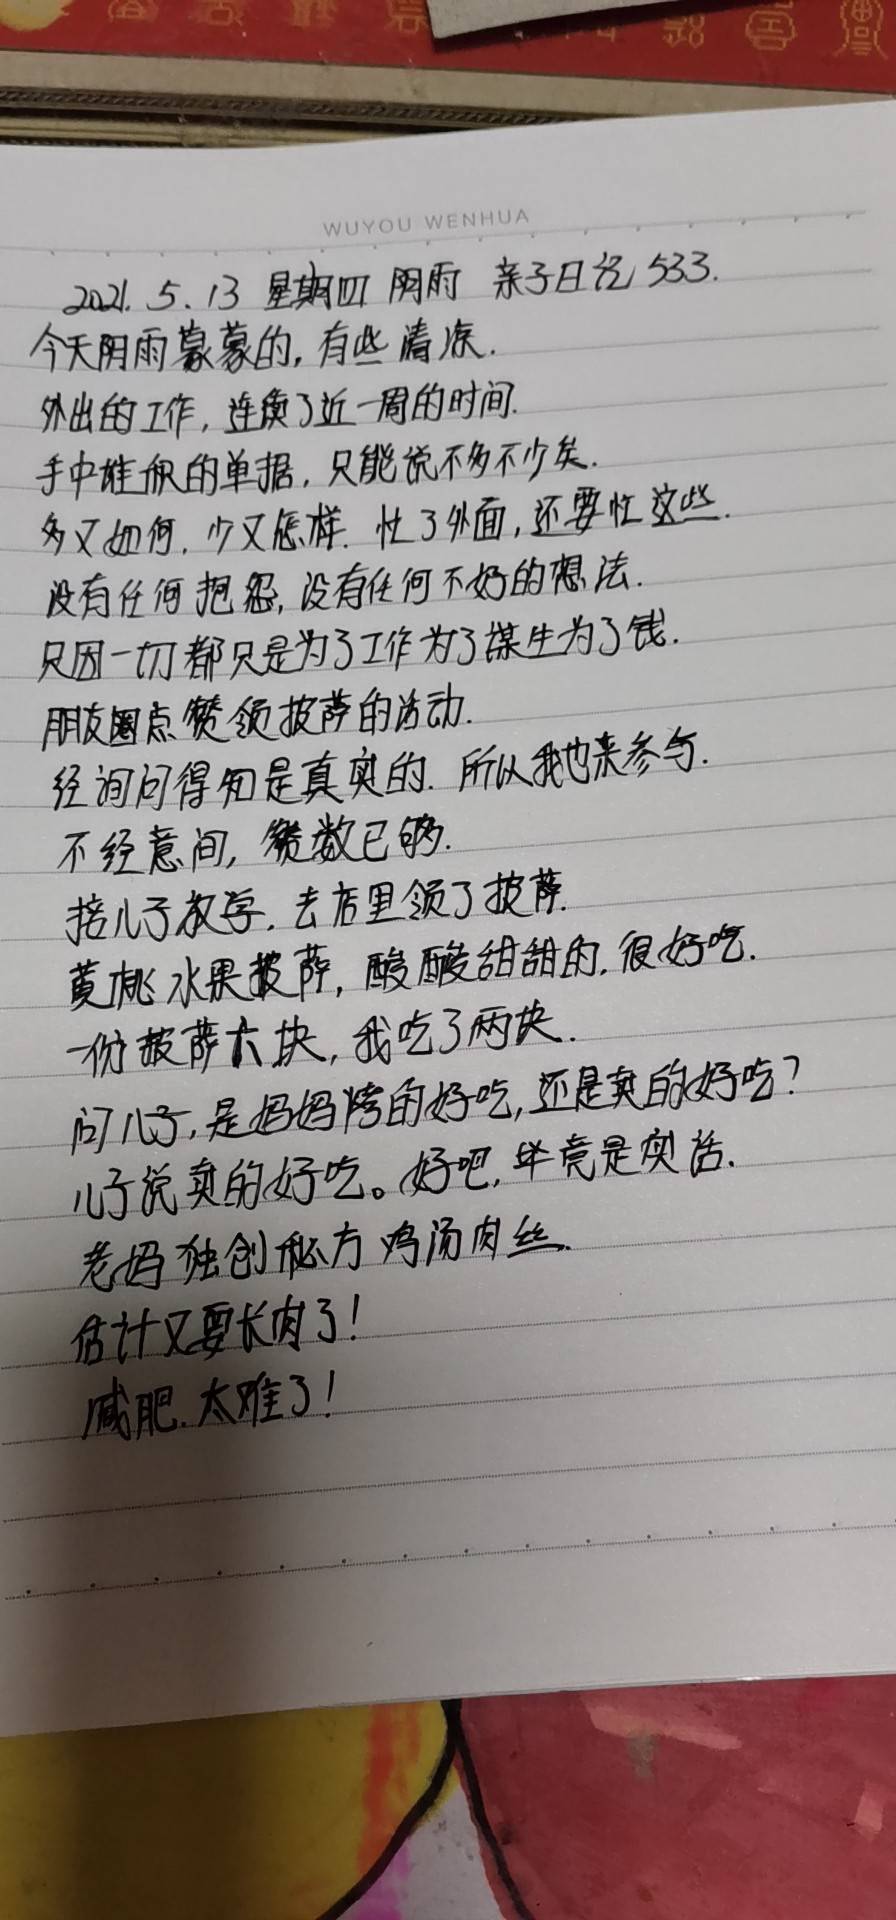 WUYOU WENHUA
2021. 5. 13 星期四 阴雨 亲子日记 533.
今天阴雨蒙蒙的, 有些清凉.
外出的工作, 连续了近一周的时间.
手中堆积的单据, 只能说不多不少矣.
多又如何, 少又怎样. 忙了外面, 还要忙这些.
没有任何抱怨, 没有任何不好的想法.
只因一切都只是为了工作为了谋生为了钱.
朋友圈点赞领披萨的活动.
经询问得知是真实的. 所以我也来参与.
不经意间, 赞数已够.
接儿子放学, 去店里领了披萨.
黄桃水果披萨, 酸酸甜甜的. 很好吃.
一份披萨六块, 我吃了两块.
问儿子, 是妈妈烤的好吃, 还是卖的好吃?
儿子说卖的好吃。好吧, 毕竟是实话.
老妈独创秘方 鸡汤肉丝.
估计又要长肉了!
减肥. 太难了!